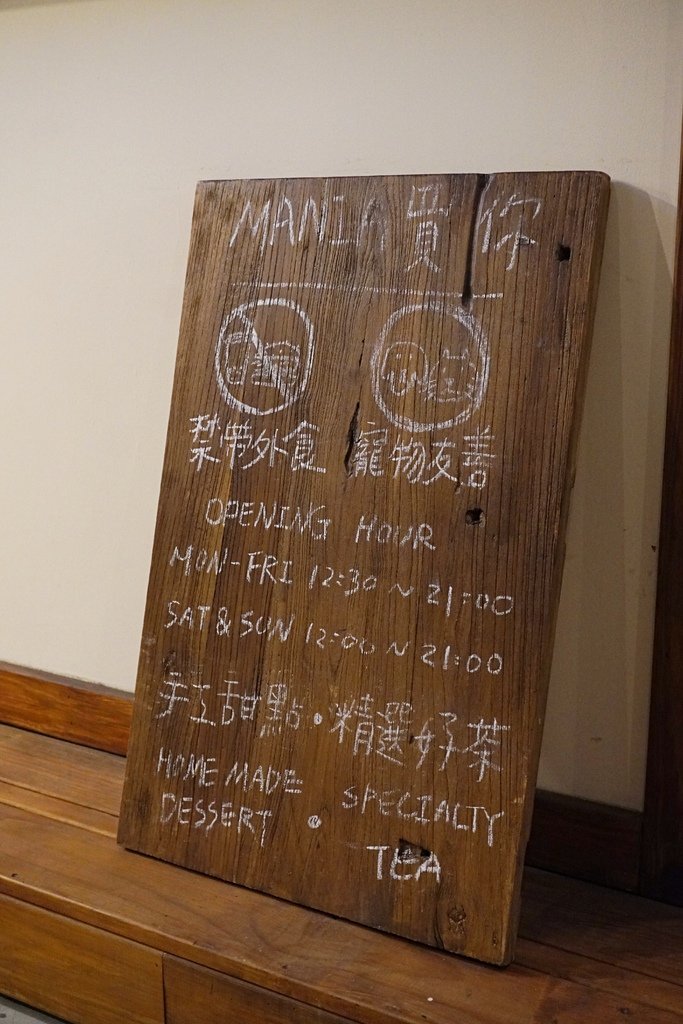 MANIA 買 你
禁帶外食 寵物友善
OPENING HOUR
MON-FRI 12:30 ~ 21:00
SAT & SUN 12:00 ~ 21:00
手工甜點 • 精選好茶
HOME MADE
DESSERT • SPECIALTY
TEA